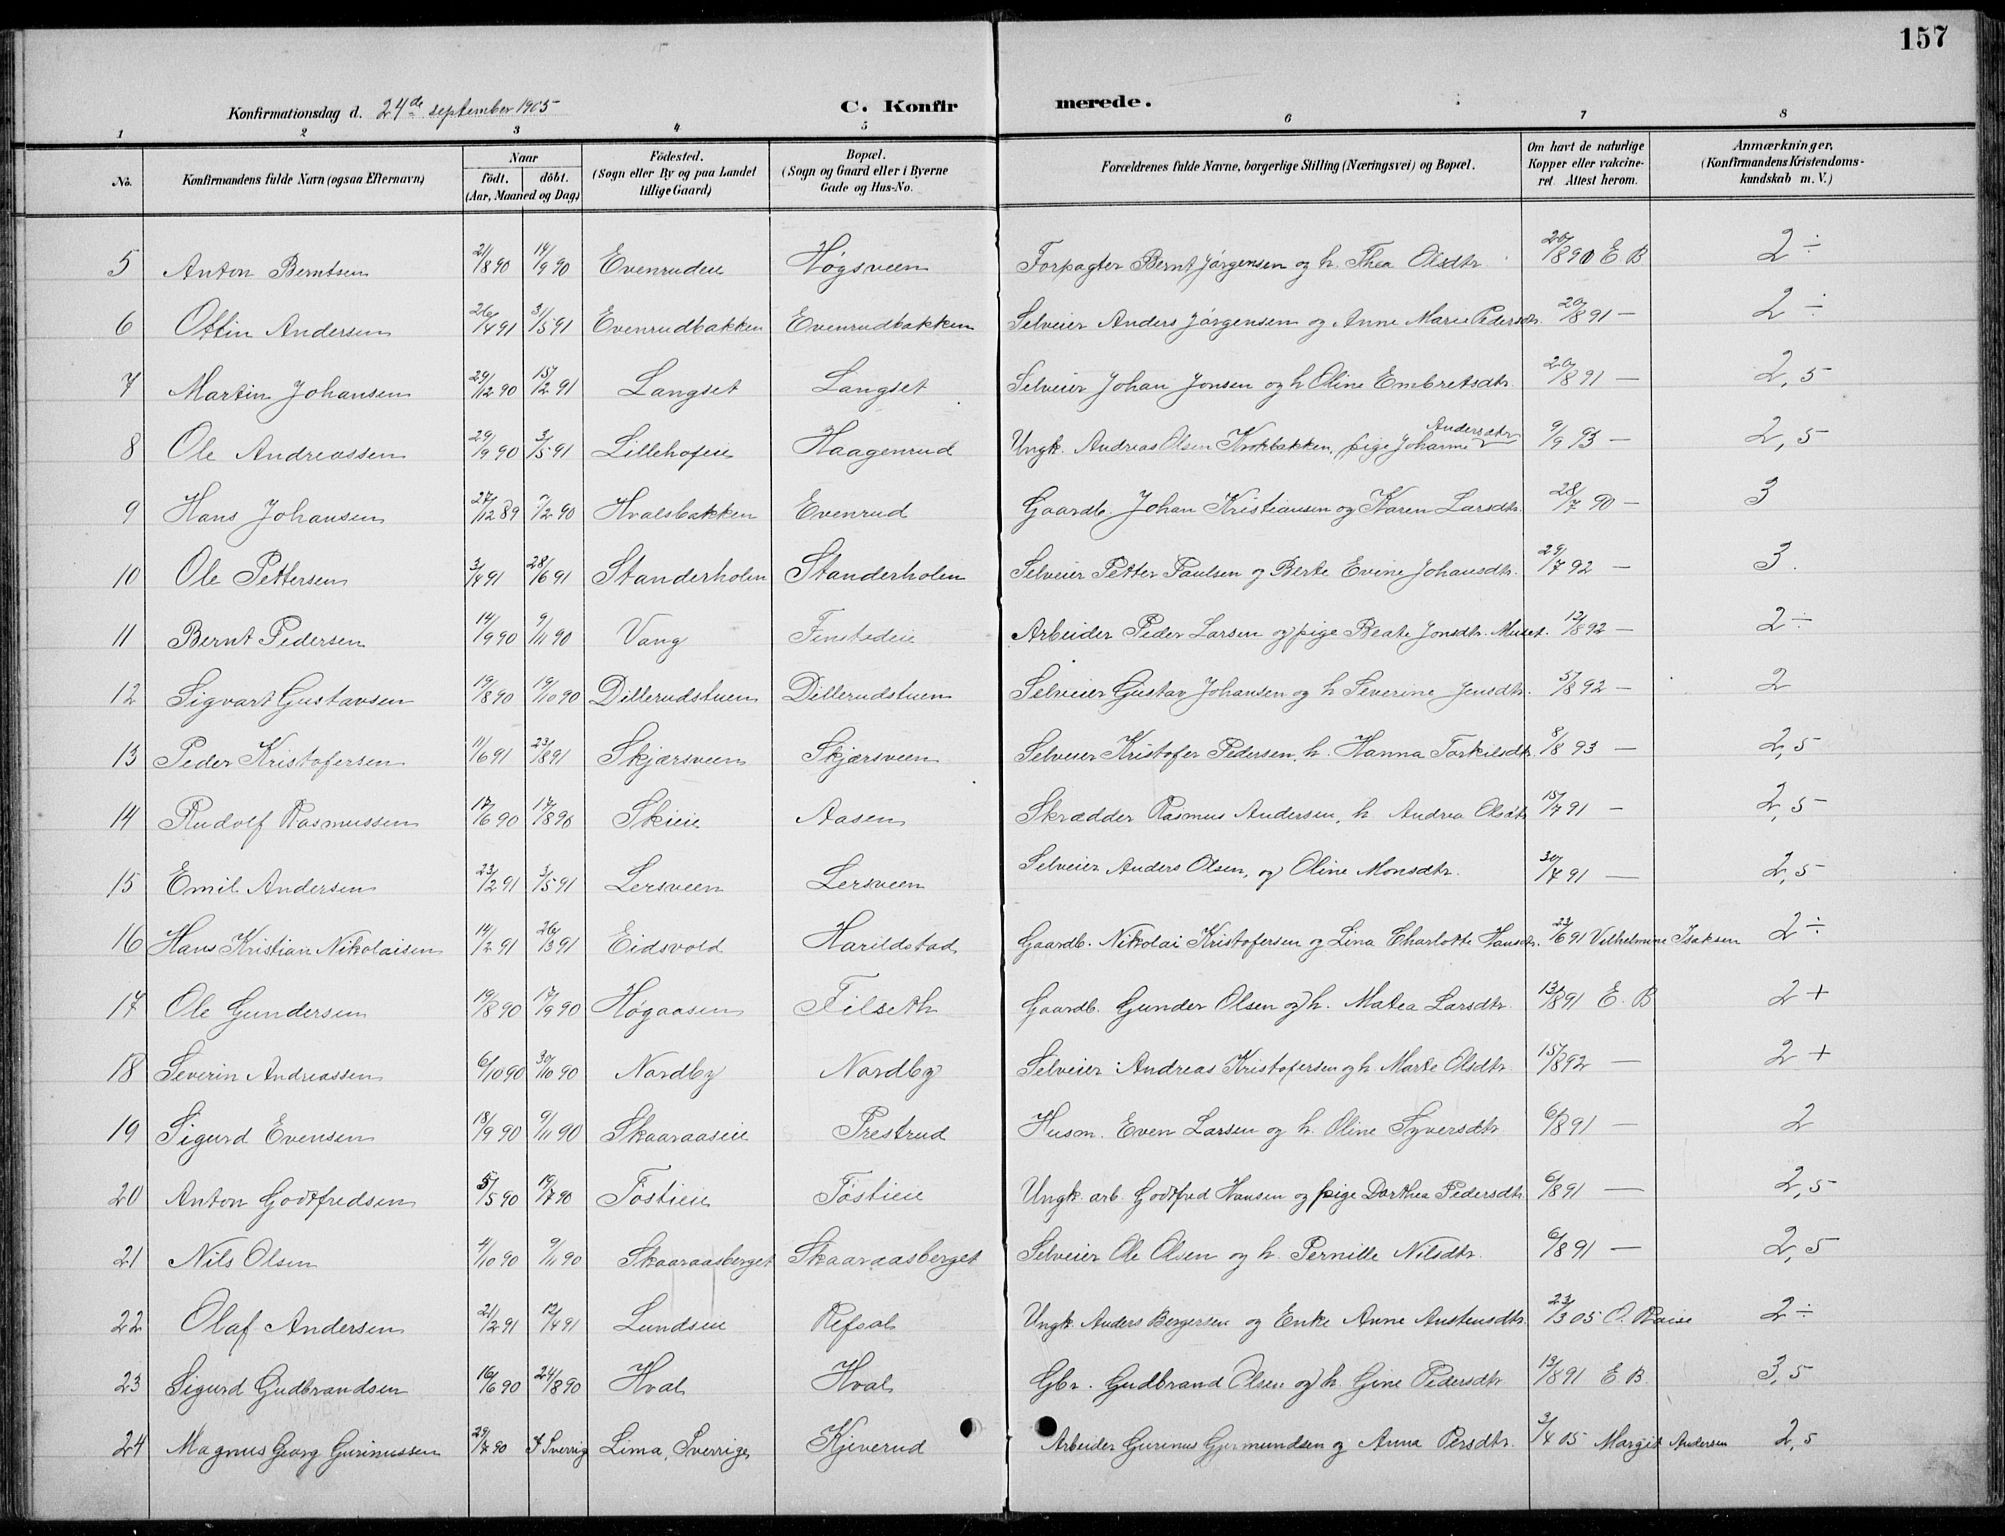 157
Konfirmationsdag d. 24de september 1905 C. Konfirmerede.
1 2 3 4 5 6 7 8
No. Konfirmandens fulde Navn (ogsaa Efternavn) Naar födt. döbt. (Aar, Maaned og Dag) Födested. (Sogn eller By og paa Landet tillige Gaard) Bopæl. (Sogn og Gaard eller i Byerne Gade og Hus-No. Forældrenes fulde Navne, borgerlige Stilling (Næringsvei) og Bopæl. Om havt de naturlige Kopper eller vakcineret. Attest herom. Anmærkninger, (Konfirmandens Kristendomskundskab m. V.)
5 Anton Berntsen 21/8 90 14/9 90 Evenrudeie Høgsveen Forpagter Bernt Jørgensen og h. Thea Olsdtr. 20/8 91 E B 2 ÷
6 Ottin Andersen 26/4 91 31/5 91 Evenrudbakken Evenrudbakken Selveier Anders Jørgensen og Anne Marie Pedersdtr. 20/8 91 — 2 ÷
7 Martin Johansen 29/12 90 15/2 91 Langset Langset Selveier Johan Jonsen og h Oline Embretsdtr. 20/8 91 — 2,5
8 Ole Andreassen 29/9 90 3/5 91 Lillehofeie Haagenrud Ungk. Andreas Olsen Krokbakken, pige Johanne Andersdtr 9/9 93 — 2,5
9 Hans Johansen 27/12 89 7/2 90 Hvalsbakken Evenrud Gaardb. Johan Kristiansen og Karen Larsdtr. 28/7 90 — 3
10 Ole Pettersen 3/4 91 28/6 91 Standerholen Standerholen Selveier Petter Paulsen og Berte Evine Johansdtr. 29/7 92 — 3.
11 Bernt Pedersen 14/9 90 9/11 90 Vang Finstadeie Arbeider Peder Larsen og pige Beate Jonsdtr. 12/8 92 — 2 ÷
12 Sigvart Gustavsen 19/8 90 19/10 90 Dillerudstuen Dillerudstuen Selveier Gustav Johansen og h Severine Jensdtr. 5/8 92 — 2
13 Peder Kristofersen 11/6 91 23/8 91 Skjærsveen Skjærsveen Selveier Kristofer Pedersen, h. Hanna Torkilsdtr. 8/8 93 — 2,5
14 Rudolf Rasmussen 17/6 90 17/8 90 Skieie Aasen Skrædder Rasmus Andersen, h. Andrea Olsdtr 15/7 91 — 2,5
15 Emil Andersen 23/2 91 3/5 91 Lersveen Lersveen Selveier Anders Olsen, og Oline Monsdtr. 30/7 91 — 2,5
16 Hans Kristian Nikolaisen 14/2 91 26/3 91 Eidsvold Harildstad Gaardb. Nikolai Kristofersen og Lina Charlotte Hansdtr. 23/6 91 Vilhelmine Isaksen 2 ÷
17 Ole Gundersen 19/8 90 17/9 90 Høgaasen Filseth Gaardb. Gunder Olsen og h. Matea Larsdtr. 13/8 91 E. B 2 +
18 Severin Andreassen 6/10 90 30/10 90 Nordby Nordby Selveier Andreas Kristofersen og h. Marte Olsdtr. 15/8 92 — 2 +
19 Sigurd Evensen 18/9 90 9/11 90 Skaaraaseie Prestrud Husm. Even Larsen og h. Oline Syversdtr 6/8 91 — 2
20 Anton Godtfredsen 5/5 90 19/7 90 Tostieie Tostieie Ungk. arb. Godtfred Hansen og pige Dorthea Pedersdtr. 6/8 91 — 2,5
21 Nils Olsen 4/10 90 9/11 90 Skaaraasberget Skaaraasberget Selveier Ole Olsen og h. Pernille Nilsdtr. 6/8 91 — 2,5
22 Olaf Andersen 21/2 91 12/4 91 Lundseie Refsal Ungk. Anders Bergersen og Enke Anne Austensdtr. 23/3 05 O. 2 ÷
23 Sigurd Gudbrandsen 16/6 90 24/8 90 Hval Hval Gbr. Gudbrand Olsen og h. Gine Pedersdtr 13/8 91 E B. 3,5
24 Magnus Georg Gurimussen 29/7 90 I Sverrig Lima, Sverrige Kjeverud Arbeider Gurinus Gjermundsen og Anna Persdtr. 3/4 05 Margit Andersen 2,5